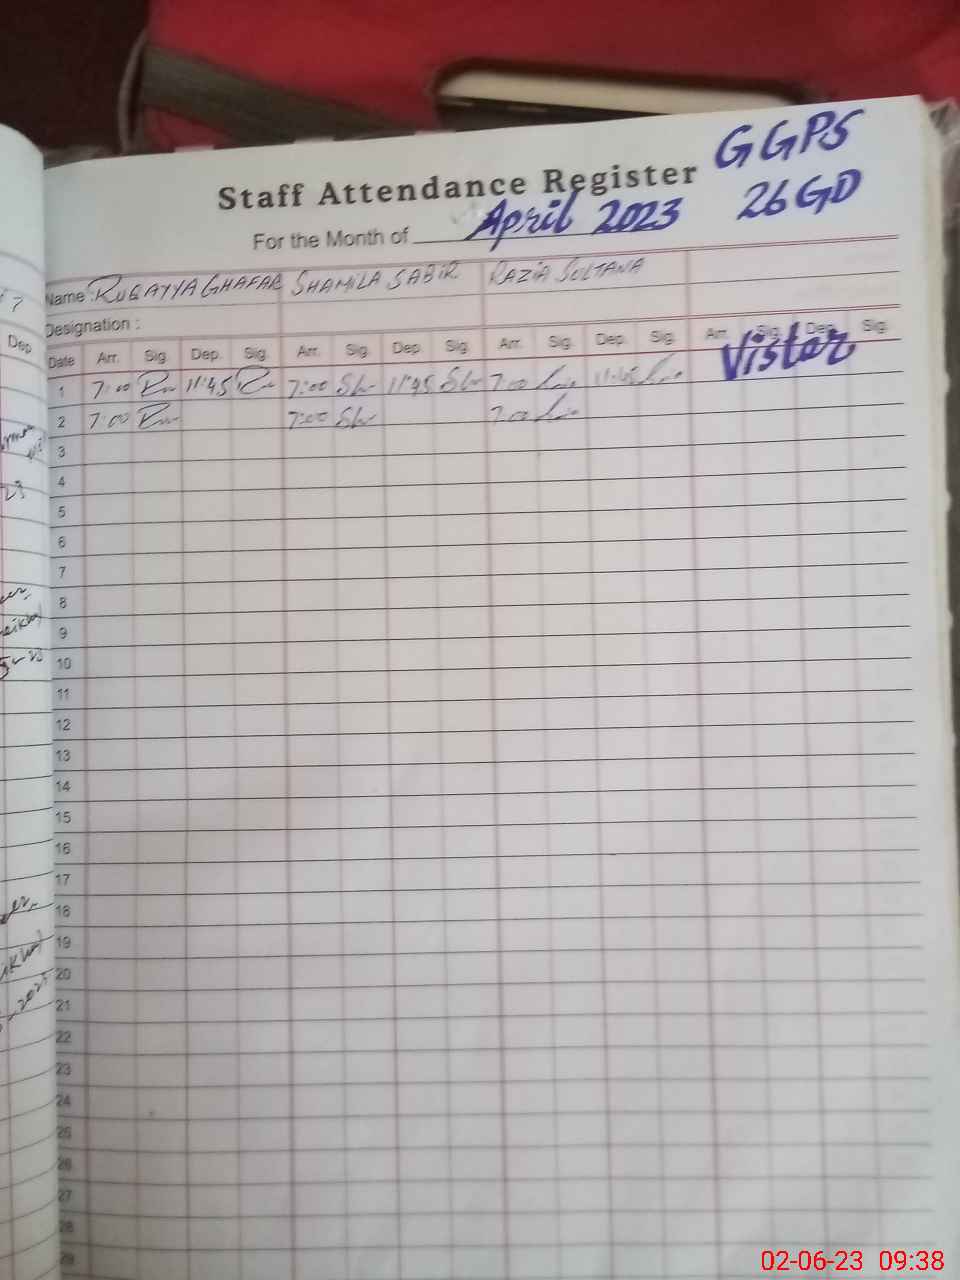 GGPS
Staff Attendance Register
26 GD
For the Month of April 2023
Name : RUQAYYA GHAFAR SHAMILA SABIR RAZIA SULTANA
Designation :
Date Arr. Sig. Dep. Sig. Arr. Sig. Dep. Sig. Arr. Sig. Dep. Sig. Arr. Sig. Dep. Sig.
Vister
1 7:00 11:45 7:00 11:45 7:00 11:45
2 7:00 7:00 7:00
3
4
5
6
7
8
9
10
11
12
13
14
15
16
17
18
19
20
21
22
23
24
25
26
27
28
29
Dep
02-06-23 09:38